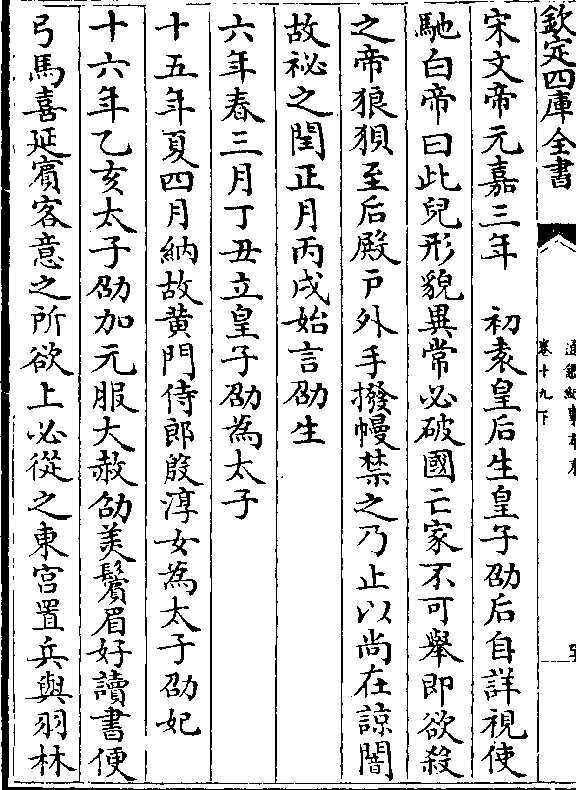 欽定四庫全書
通鑑紀事本末
卷十九下
宋文帝元嘉三年　初袁皇后生皇子劭后自詳視使
馳白帝曰此兒形貌異常必破國亡家不可舉即欲殺
之帝狼狽至后殿户外手撥幔禁之乃止以尚在諒闇
故祕之閏正月丙戌始言劭生
六年春三月丁丑立皇子劭為太子
十五年夏四月納故黄門侍郎殷淳女為太子劭妃
十六年乙亥太子劭加元服大赦劭美鬢眉好讀書便
弓馬喜延賓客意之所欲上必從之東宫置兵與羽林